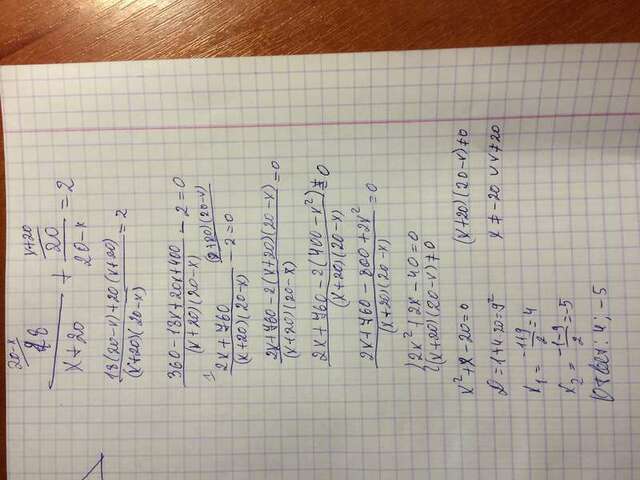 18/(x+20) + 20/(20-x) = 2
(18(20-x)+20(x+20))/((x+20)(20-x)) = 2
(360-18x+20x+400)/((x+20)(20-x)) - 2 = 0
(2x+760)/((x+20)(20-x)) - 2 = 0
(2x+760-2(x+20)(20-x))/((x+20)(20-x)) = 0
(2x+760-2(400-x²))/((x+20)(20-x)) = 0
(2x+760-800+2x²)/((x+20)(20-x)) = 0
{2x²+2x-40=0
(x+20)(20-x)≠0
x²+x-20=0 (x+20)(20-x)≠0
D=1+4·20=9² x≠-20 ∪ x≠20
x₁=(-1+9)/2=4
x₂=(-1-9)/2=-5
Ответ: 4; -5